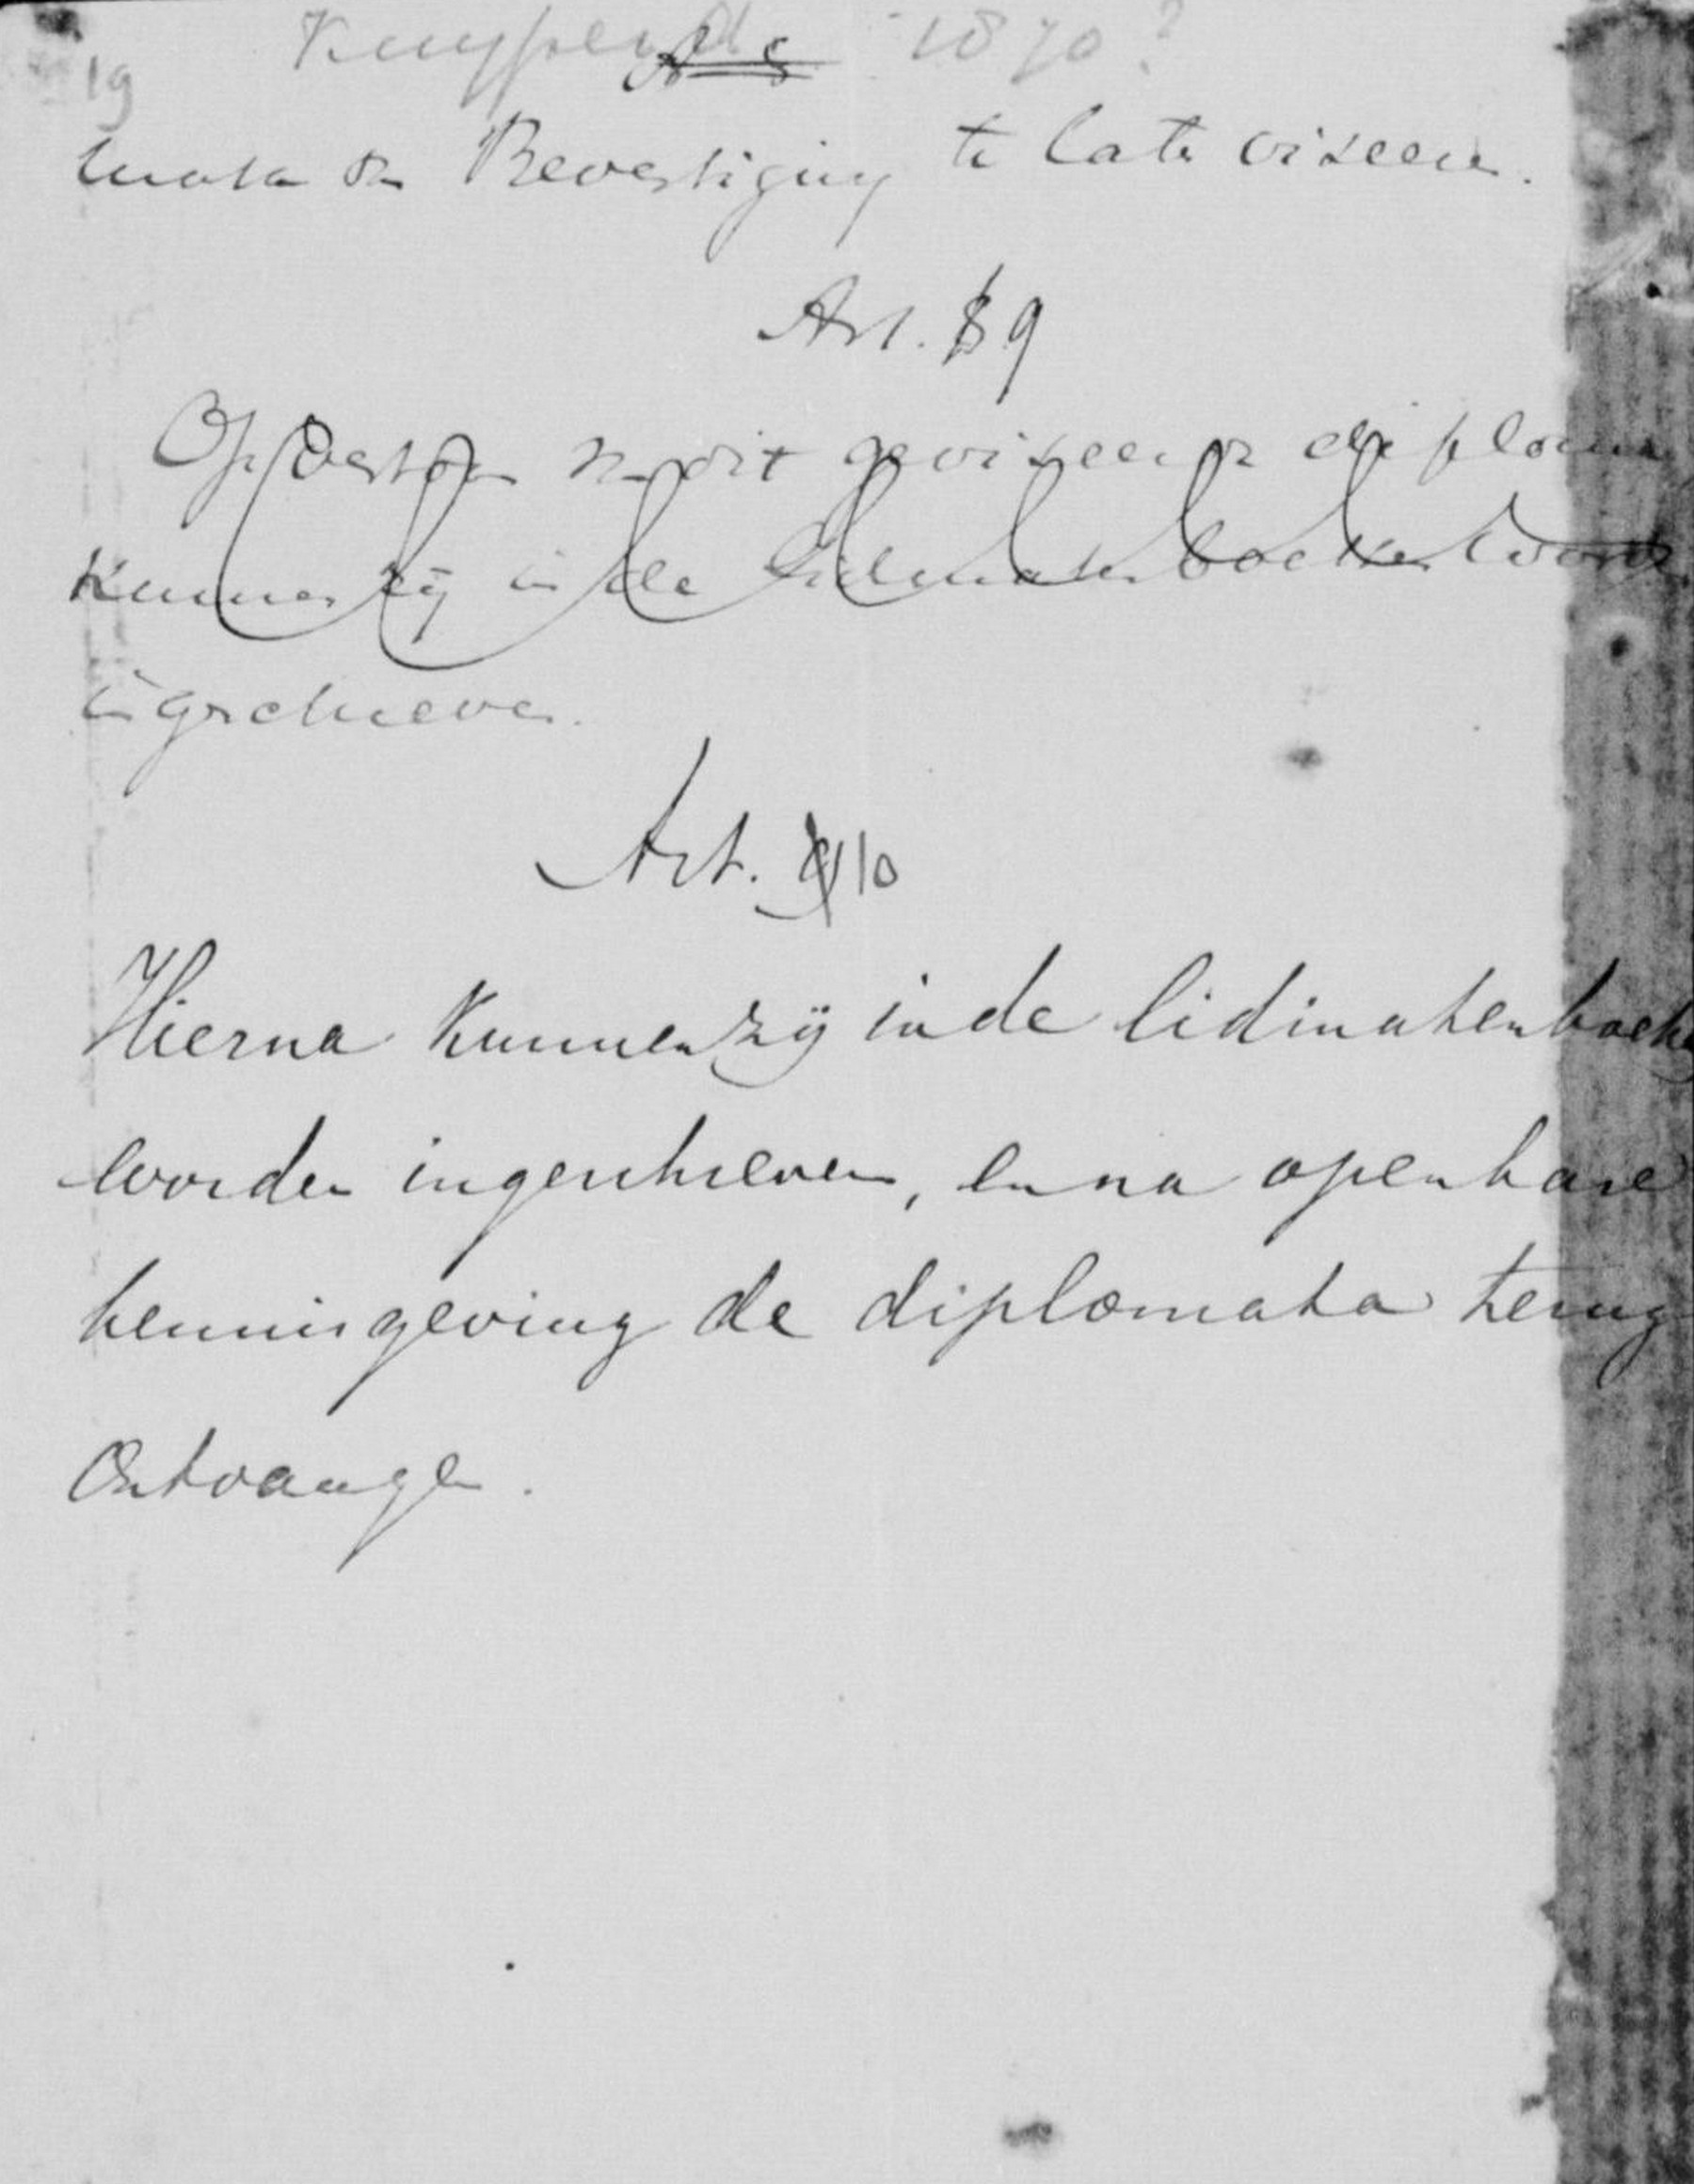 Kuyper 1870?
19
Bevestiging te laten viseeren.
Art. 8 9
Op vertoon van dit geviseerde diploma
kunnen zij in de lidmatenboeken worden
ingeschreven.
Art. 9 10
Hierna kunnen zij in de lidmatenboeken
worden ingeschreven, en na openbare
kennisgeving de diplomata terug
ontvangen.